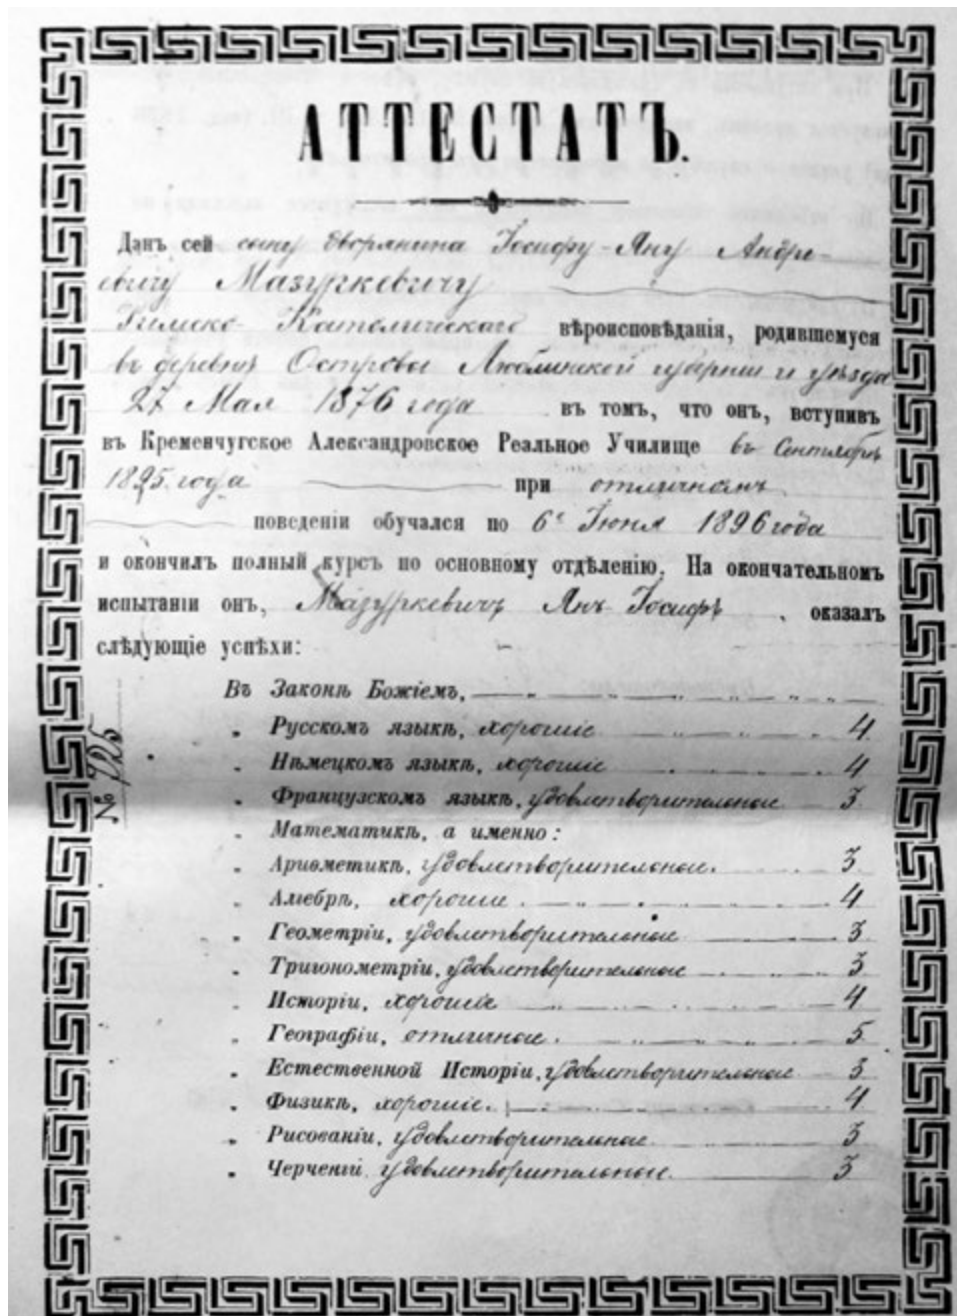 АТТЕСТАТЪ.
Данъ сей сыну дворянина Іосифу-Яну Андре-
евичу Мазуркевичу
Римско-Католическаго вѣроисповѣданія, родившемуся
въ деревнѣ Островъ Люблинской губерніи и уѣзда
27 Мая 1876 года въ томъ, что онъ, вступив
въ Кременчугское Александровское Реальное Училище въ Сентябрѣ
1895 года при отличномъ
поведеніи обучался по 6е Іюня 1896 года
и окончилъ полный курсъ по основному отдѣленію. На окончательном
испытаніи онъ, Мазуркевичъ Янъ-Іосифъ, оказал
слѣдующіе успѣхи:
Въ Законѣ Божіемъ,
„ Русскомъ языкѣ, хорошіе 4
„ Нѣмецкомъ языкѣ, хорошіе 4
„ Французскомъ языкѣ, удовлетворительные 3
„ Математикѣ, а именно:
„ Ариѳметикѣ, удовлетворительные. 3
„ Алгебрѣ, хорошіе 4
„ Геометріи, удовлетворительные 3
„ Тригонометріи, удовлетворительные 3
„ Исторіи, хорошіе 4
„ Географіи, отличные. 5
„ Естественной Исторіи, удовлетворительные 3
„ Физикѣ, хорошіе. 4
„ Рисованіи, удовлетворительные 3
„ Черченіи, удовлетворительные. 3
№ 725